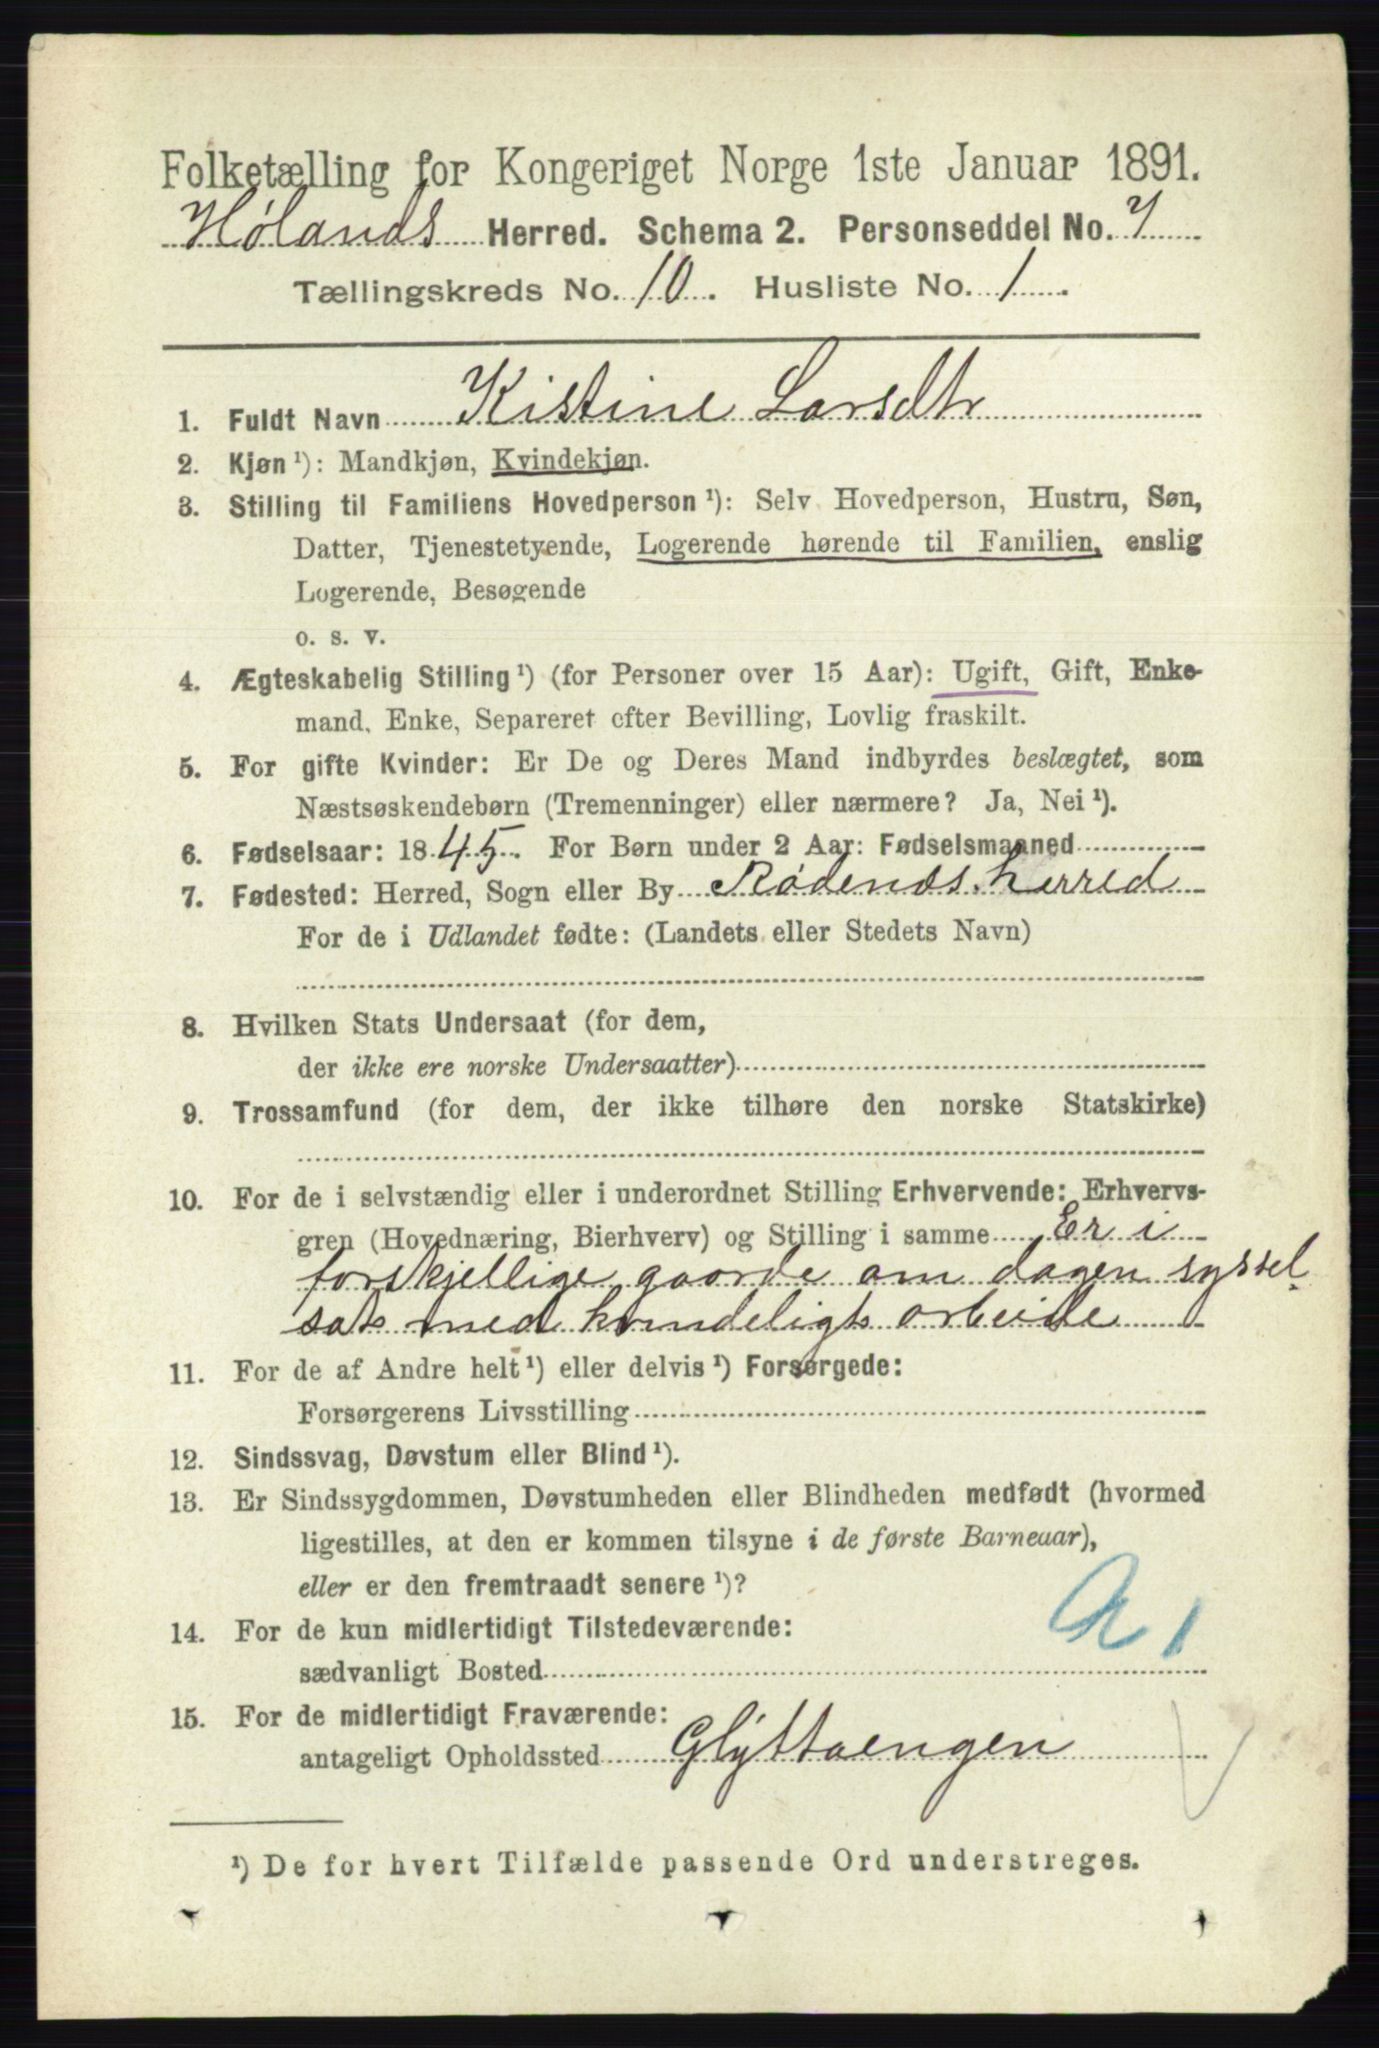 Folketælling for Kongeriget Norge 1ste Januar 1891.
Hølands Herred. Schema 2. Personseddel No. 7
Tællingskreds No. 10. Husliste No. 1.
1. Fuldt Navn Kistine Larsdtr
2. Kjøn ¹): Mandkjøn, Kvindekjøn.
3. Stilling til Familiens Hovedperson ¹): Selv Hovedperson, Hustru, Søn,
Datter, Tjenestetyende, Logerende hørende til Familien, enslig
Logerende, Besøgende
o. s. v.
4. Ægteskabelig Stilling ¹) (for Personer over 15 Aar): Ugift, Gift, Enke-
mand, Enke, Separeret efter Bevilling, Lovlig fraskilt.
5. For gifte Kvinder: Er De og Deres Mand indbyrdes beslægtet, som
Næstsøskendebørn (Tremenninger) eller nærmere? Ja, Nei ¹).
6. Fødselsaar: 1845. For Børn under 2 Aar: Fødselsmaaned
7. Fødested: Herred, Sogn eller By Rødends herred
For de i Udlandet fødte: (Landets eller Stedets Navn)
8. Hvilken Stats Undersaat (for dem,
der ikke ere norske Undersaatter)
9. Trossamfund (for dem, der ikke tilhøre den norske Statskirke)
10. For de i selvstændig eller i underordnet Stilling Erhvervende: Erhvervs-
gren (Hovednæring, Bierhverv) og Stilling i samme Er i
forskjellige gaarde om dagen syssel
sat med kvindeligt arbeide
11. For de af Andre helt ¹) eller delvis ¹) Forsørgede:
Forsørgerens Livsstilling
12. Sindssvag, Døvstum eller Blind ¹).
13. Er Sindssygdommen, Døvstumheden eller Blindheden medfødt (hvormed
ligestilles, at den er kommen tilsyne i de første Barneaar),
eller er den fremtraadt senere ¹)?
14. For de kun midlertidigt Tilstedeværende:
sædvanligt Bosted
15. For de midlertidigt Fraværende:
antageligt Opholdssted Glyttaengen
¹) De for hvert Tilfælde passende Ord understreges.